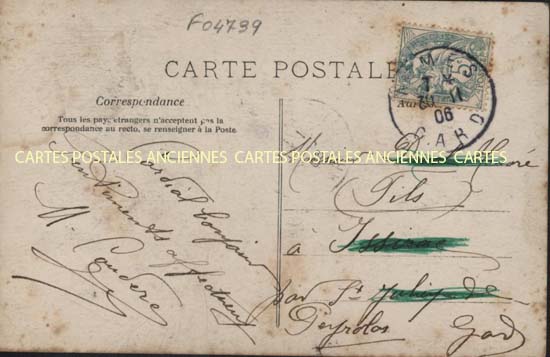 F04739
CARTE POSTALE
Correspondance
Tous les pays étrangers n'acceptent pas la
correspondance au recto, se renseigner à la Poste
CARTES POSTALES ANCIENNES CARTES POSTALES ANCIENNES CARTES
NIMES
30 11
06
GARD
Cordial bonjour
M. Coudere
Monsieur
Fils
à Issirac
par St Julien de
Peyrolas Gard